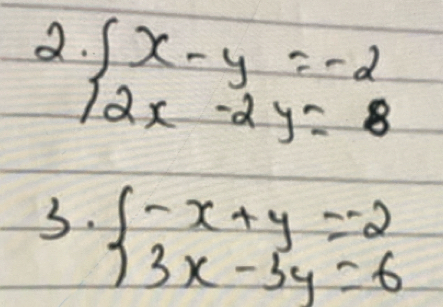 2. { x - y = -2
2x - 2y = 8
3. { -x + y = -2
3x - 3y = 6